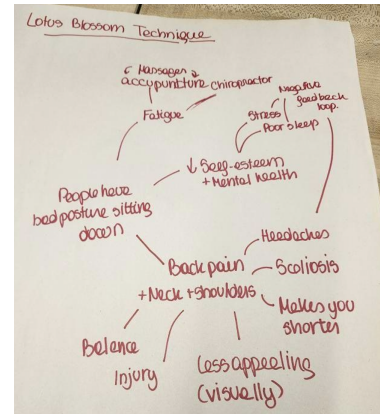 Lotus Blossom Technique
Massages
accupuncture chiropractor
Negative
feedback
loop.
Stress
Poor sleep
Fatigue
↓ Self-esteem
+ Mental health
People have
bad posture sitting
down
Headaches
Back pain
Scoliosis
+ Neck + shoulders
Makes you
shorter
Balence
Injury
Less appeeling
(visually)